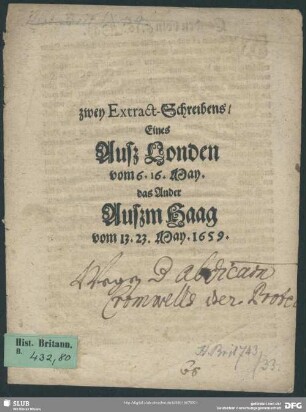 zwey Extract-Schreibens/
Eines
Ausz Londen
vom 6. 16. May.
das Ander
Auszm Haag
vom 13. 23. May. 1659.
Wegen D abdicam
Cromwells der Prote
Hist. Britann.
B.
432,80
H. Brit 743
33.
SLUB
DFG